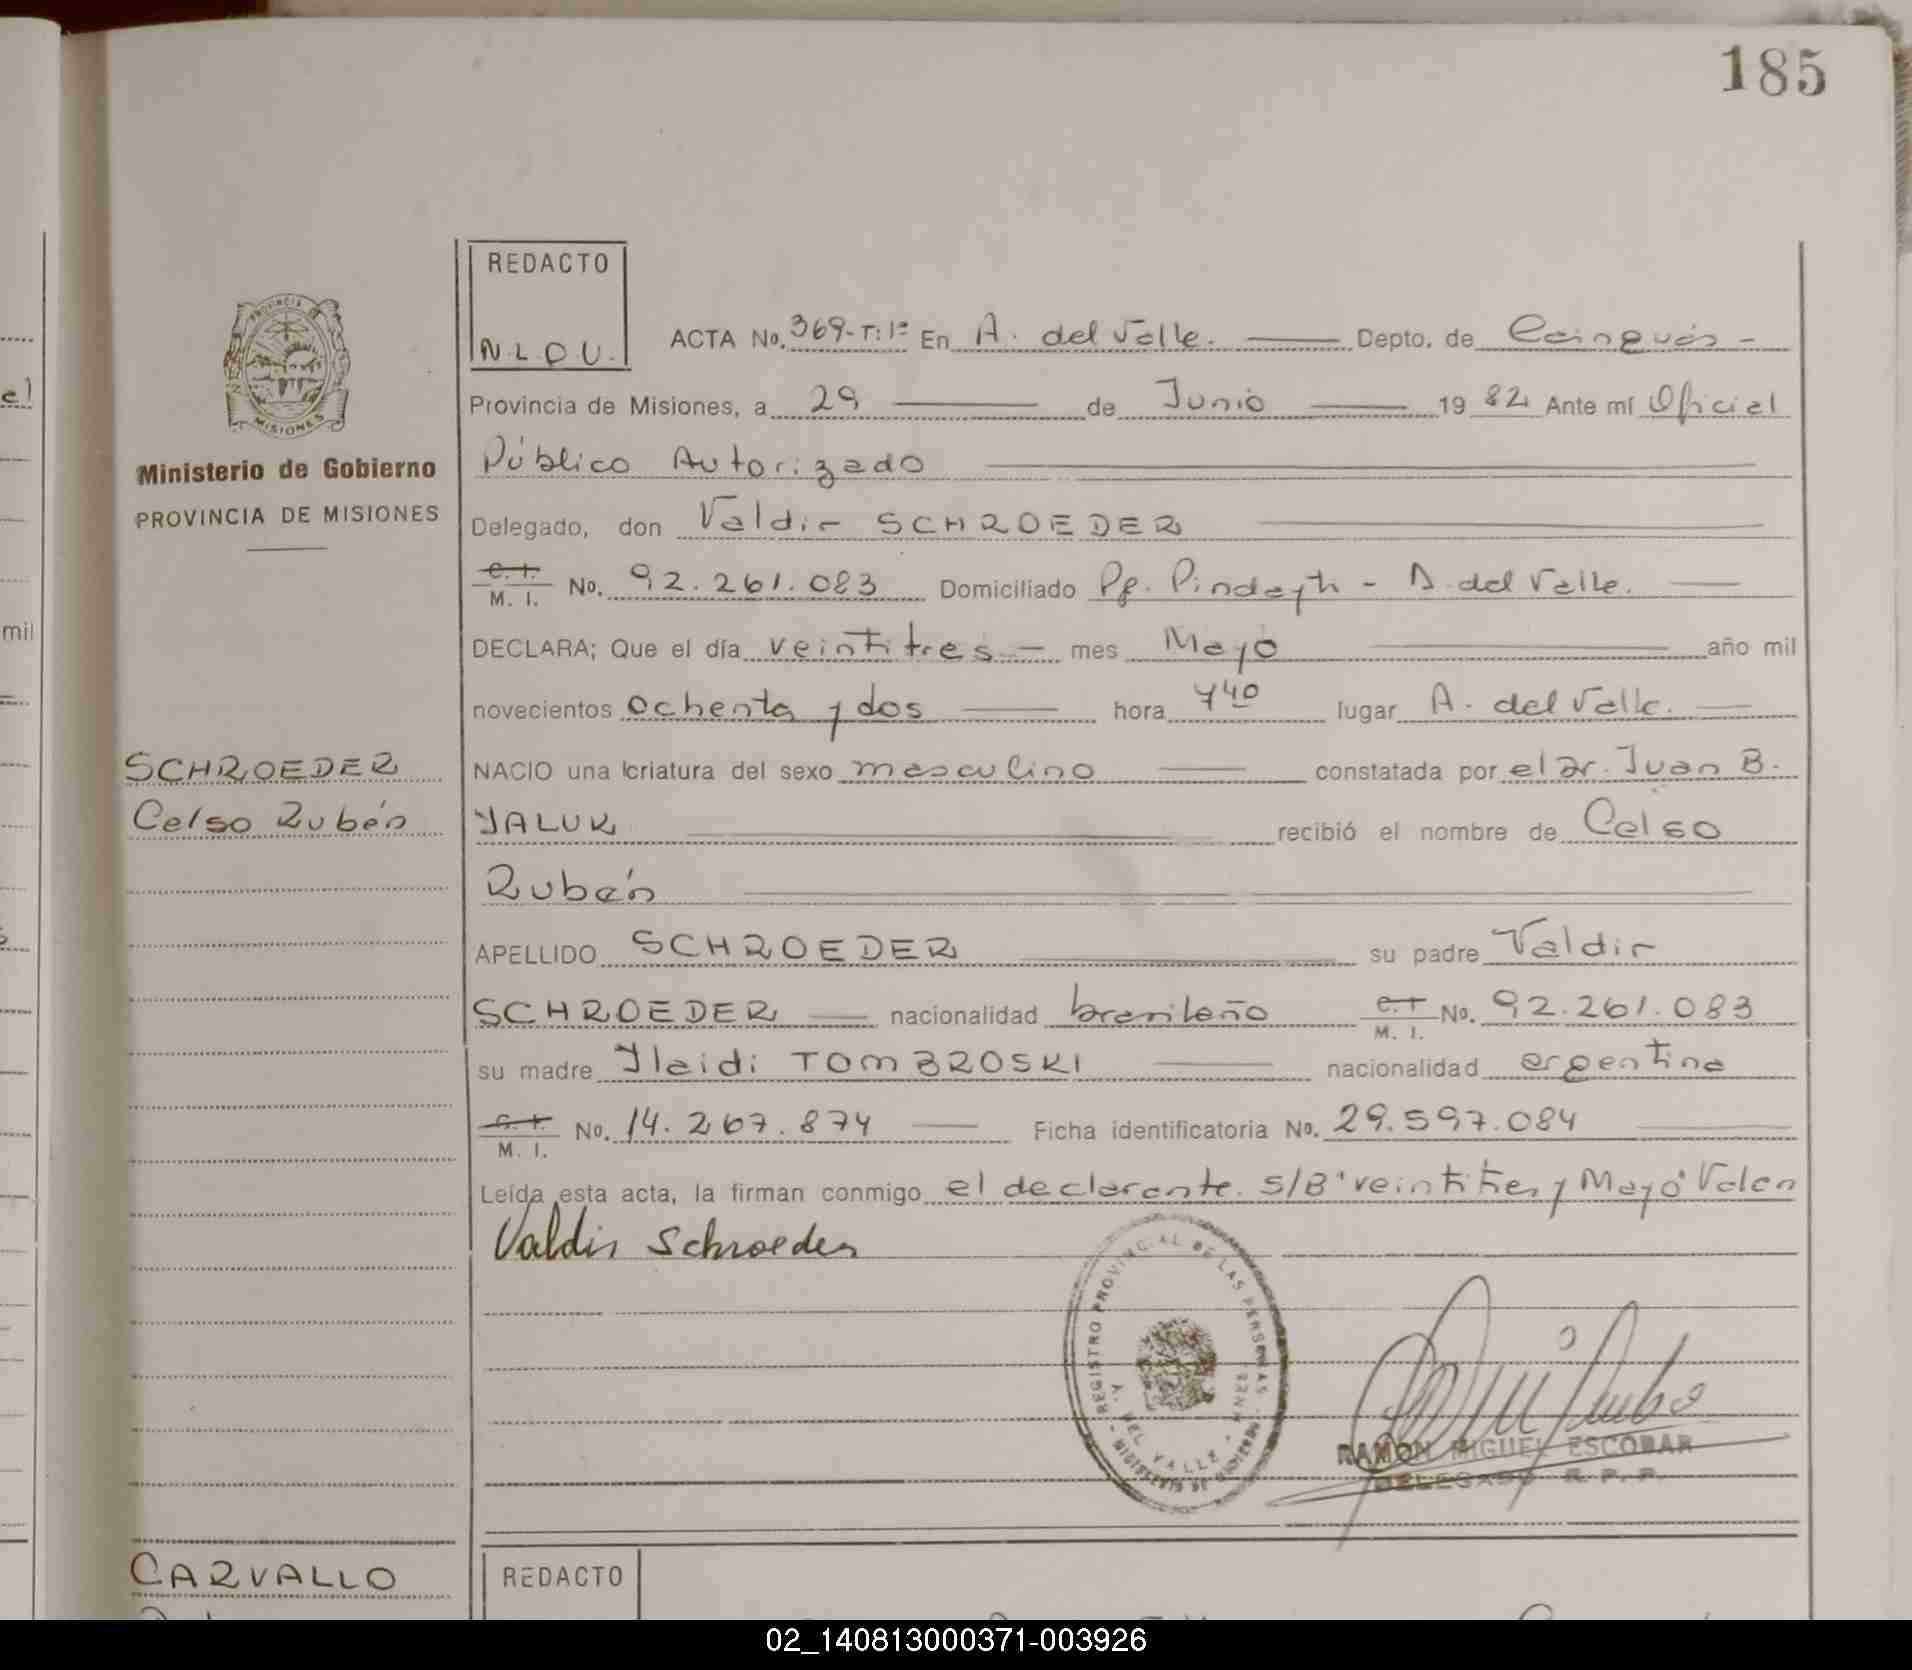 185
REDACTO
N.L.D.U.
ACTA No. 369-T:1º En A. del Valle. Depto. de Cainguás -
Provincia de Misiones, a 29 de Junio 1982 Ante mí Oficial
Público Autorizado
Delegado, don Valdir SCHROEDER
C. I. M. I. No. 92.261.083 Domiciliado Pje. Pindayti - A. del Valle.
DECLARA; Que el día veintitres - mes Mayo año mil
novecientos ochenta y dos hora 7 40 lugar A. del Valle.
NACIO una criatura del sexo masculino constatada por el Dr. Juan B.
YALUK recibió el nombre de Celso
Rubén
APELLIDO SCHROEDER su padre Valdir
SCHROEDER nacionalidad brasileño C. I. M. I. No. 92.261.083
su madre Ylaidi TOMBROSKI nacionalidad argentina
C. I. M. I. No. 14.267.874 Ficha identificatoria No. 29.597.084
Leída esta acta, la firman conmigo el declarante. S/B "veintitres y Mayo" Valen
Valdir Schroeder
REGISTRO PROVINCIAL DE LAS PERSONAS
A. DEL VALLE
RAMON MIGUEL ESCOBAR
DELEGADO R. P. P.
Ministerio de Gobierno
PROVINCIA DE MISIONES
PROVINCIA
MISIONES
SCHROEDER
Celso Rubén
CARVALLO
REDACTO
mil
02_140813000371-003926